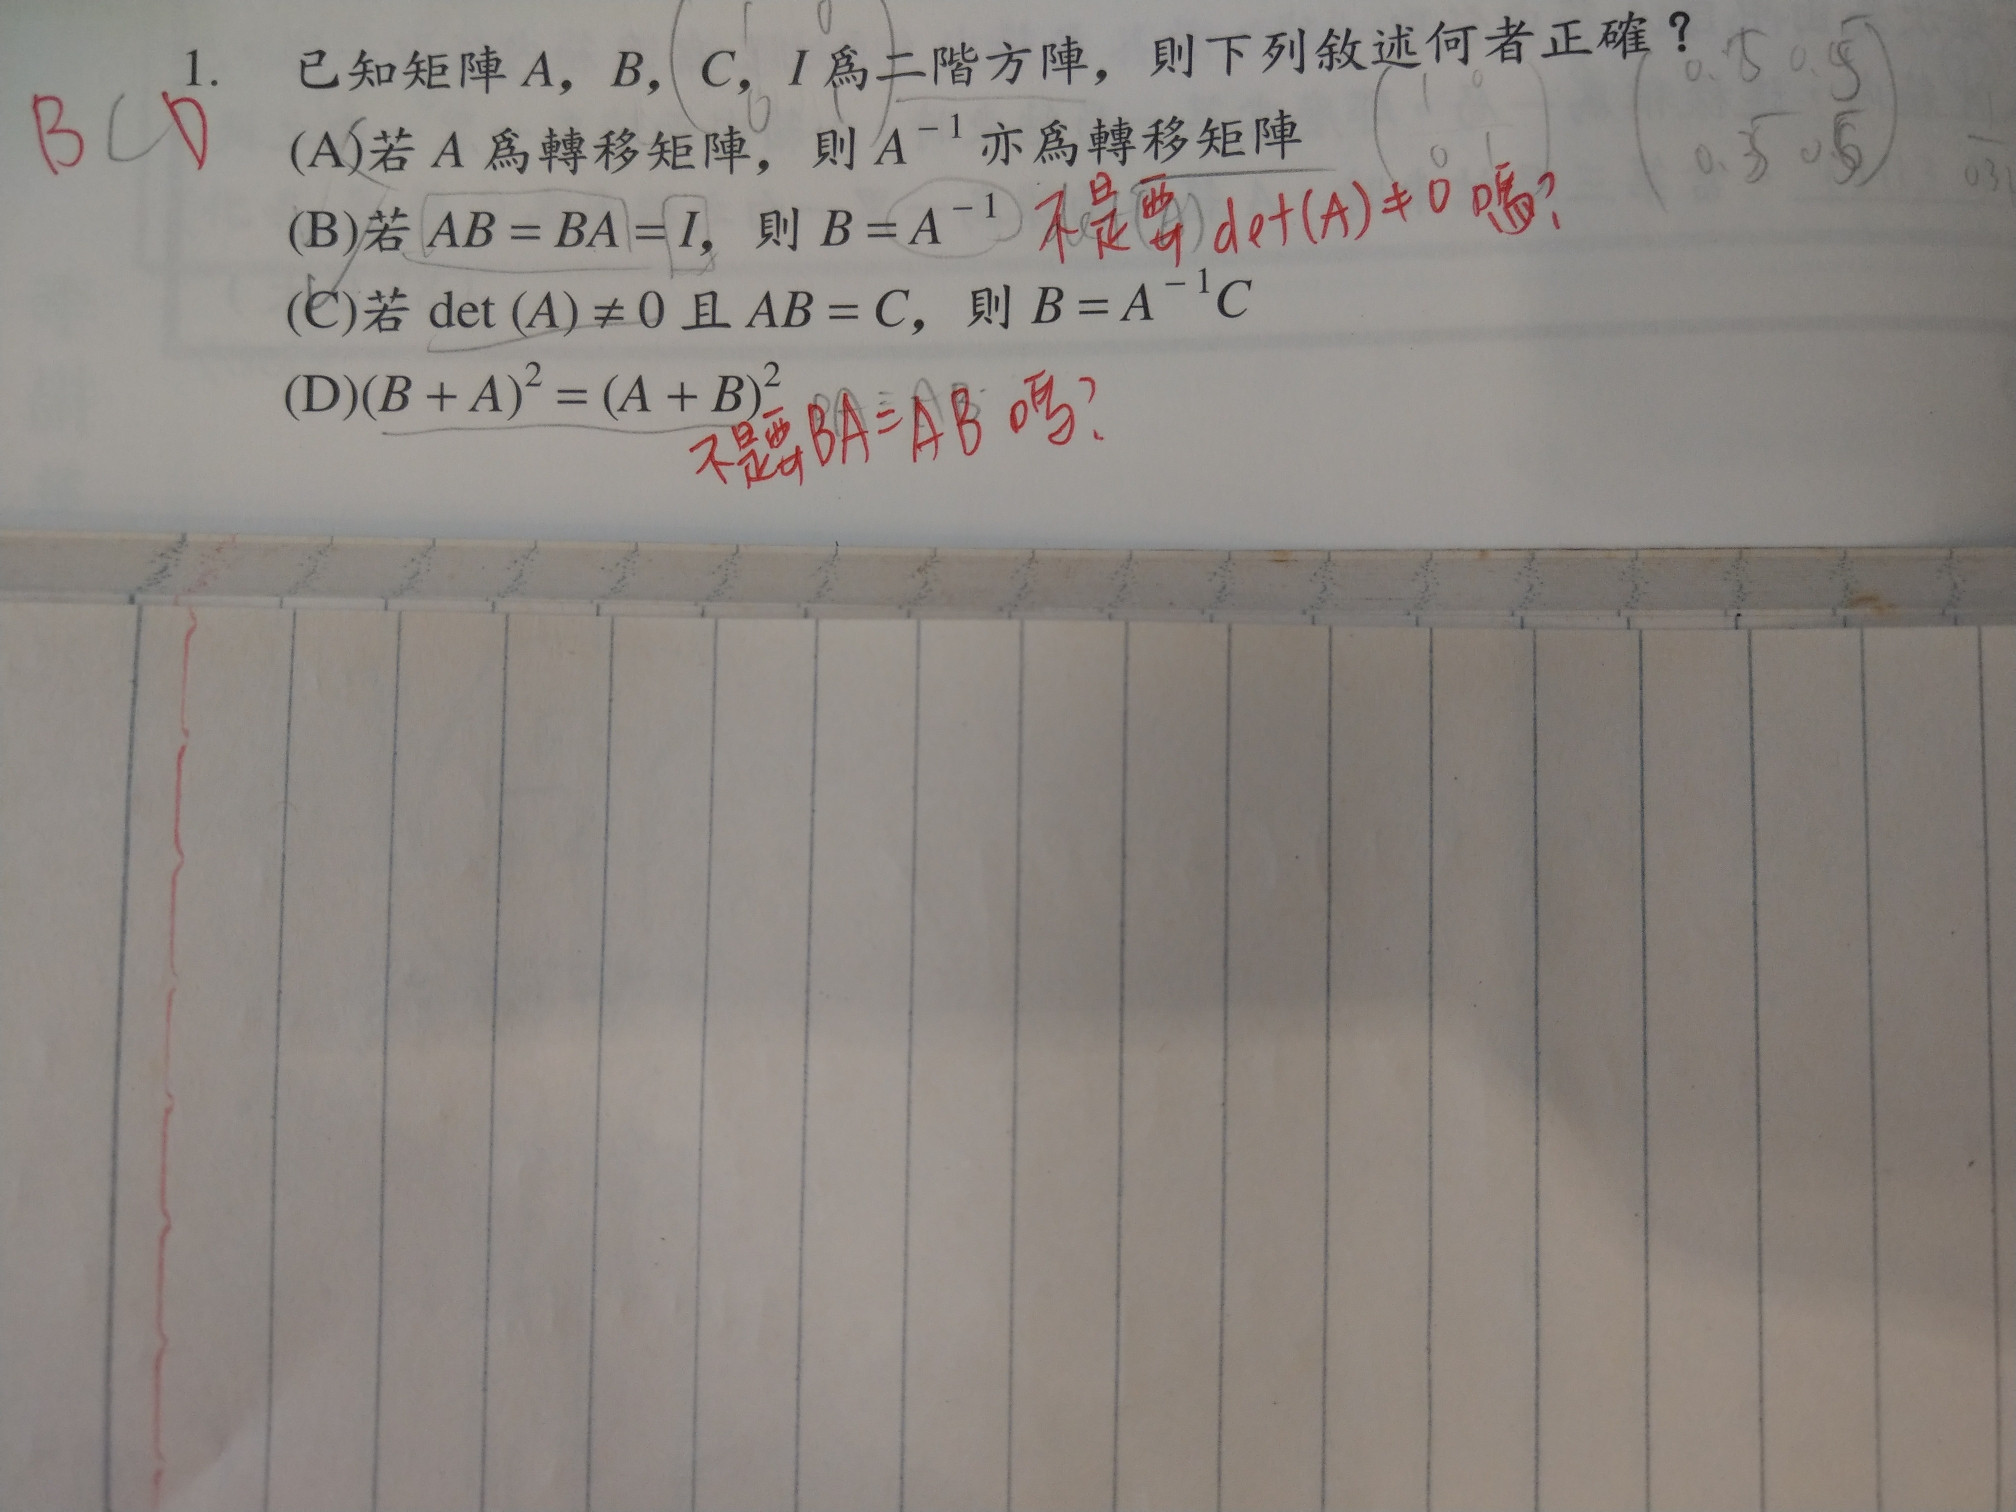 1. 已知矩陣 A，B，C，I 為二階方陣，則下列敘述何者正確？
BCD
(A)若 A 為轉移矩陣，則 A⁻¹ 亦為轉移矩陣
(B)若 AB = BA = I，則 B = A⁻¹ 不是要 det(A) ≠ 0 嗎？
(C)若 det (A) ≠ 0 且 AB = C，則 B = A⁻¹C
(D)(B + A)² = (A + B)²
不是要 BA = AB 嗎？
1 0
0 1
1 0
0 1
0.5 0.5